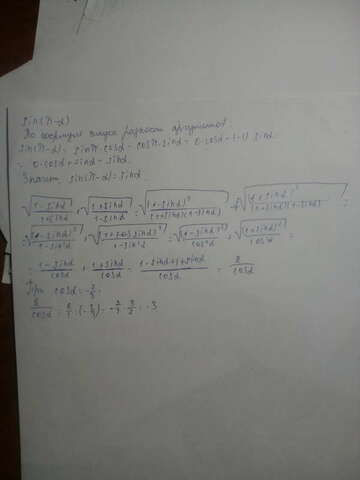 sin(π-α)
По формуле синуса разности аргументов
sin(π-α) = sinπ·cosα - cosπ·sinα = 0·cosα - (-1) sinα
= 0·cosα + sinα = sinα.
Значит, sin(π-α) = sinα.
√((1-sinα)/(1+sinα)) + √((1+sinα)/(1-sinα)) = √((1-sinα)²/((1+sinα)(1-sinα))) + √((1+sinα)²/((1-sinα)(1+sinα))) =
= √((1-sinα)²/(1-sin²α)) + √((1+sinα)²/(1-sin²α)) = √((1-sinα)²/cos²α) + √((1+sinα)²/cos²α) =
= (1-sinα)/cosα + (1+sinα)/cosα = (1-sinα+1+sinα)/cosα = 2/cosα
При cosα = -2/3
2/cosα = 2/1 : (-2/3) = -2/1 · 3/2 = -3